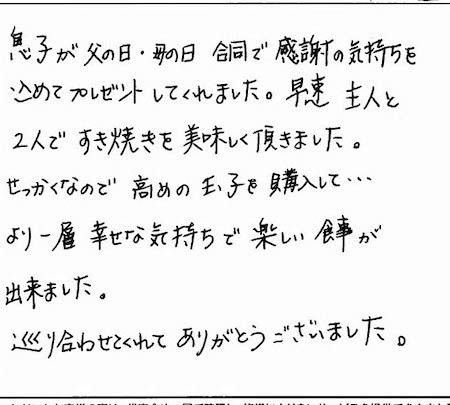 息子が父の日・母の日 合同で 感謝の気持ちを
込めてプレゼントしてくれました。早速 主人と
2人で すき焼きを美味しく頂きました。
せっかくなので 高めの玉子を購入して…
より一層 幸せな気持ちで 楽しい 食事が
出来ました。
巡り合わせてくれて ありがとうございました。